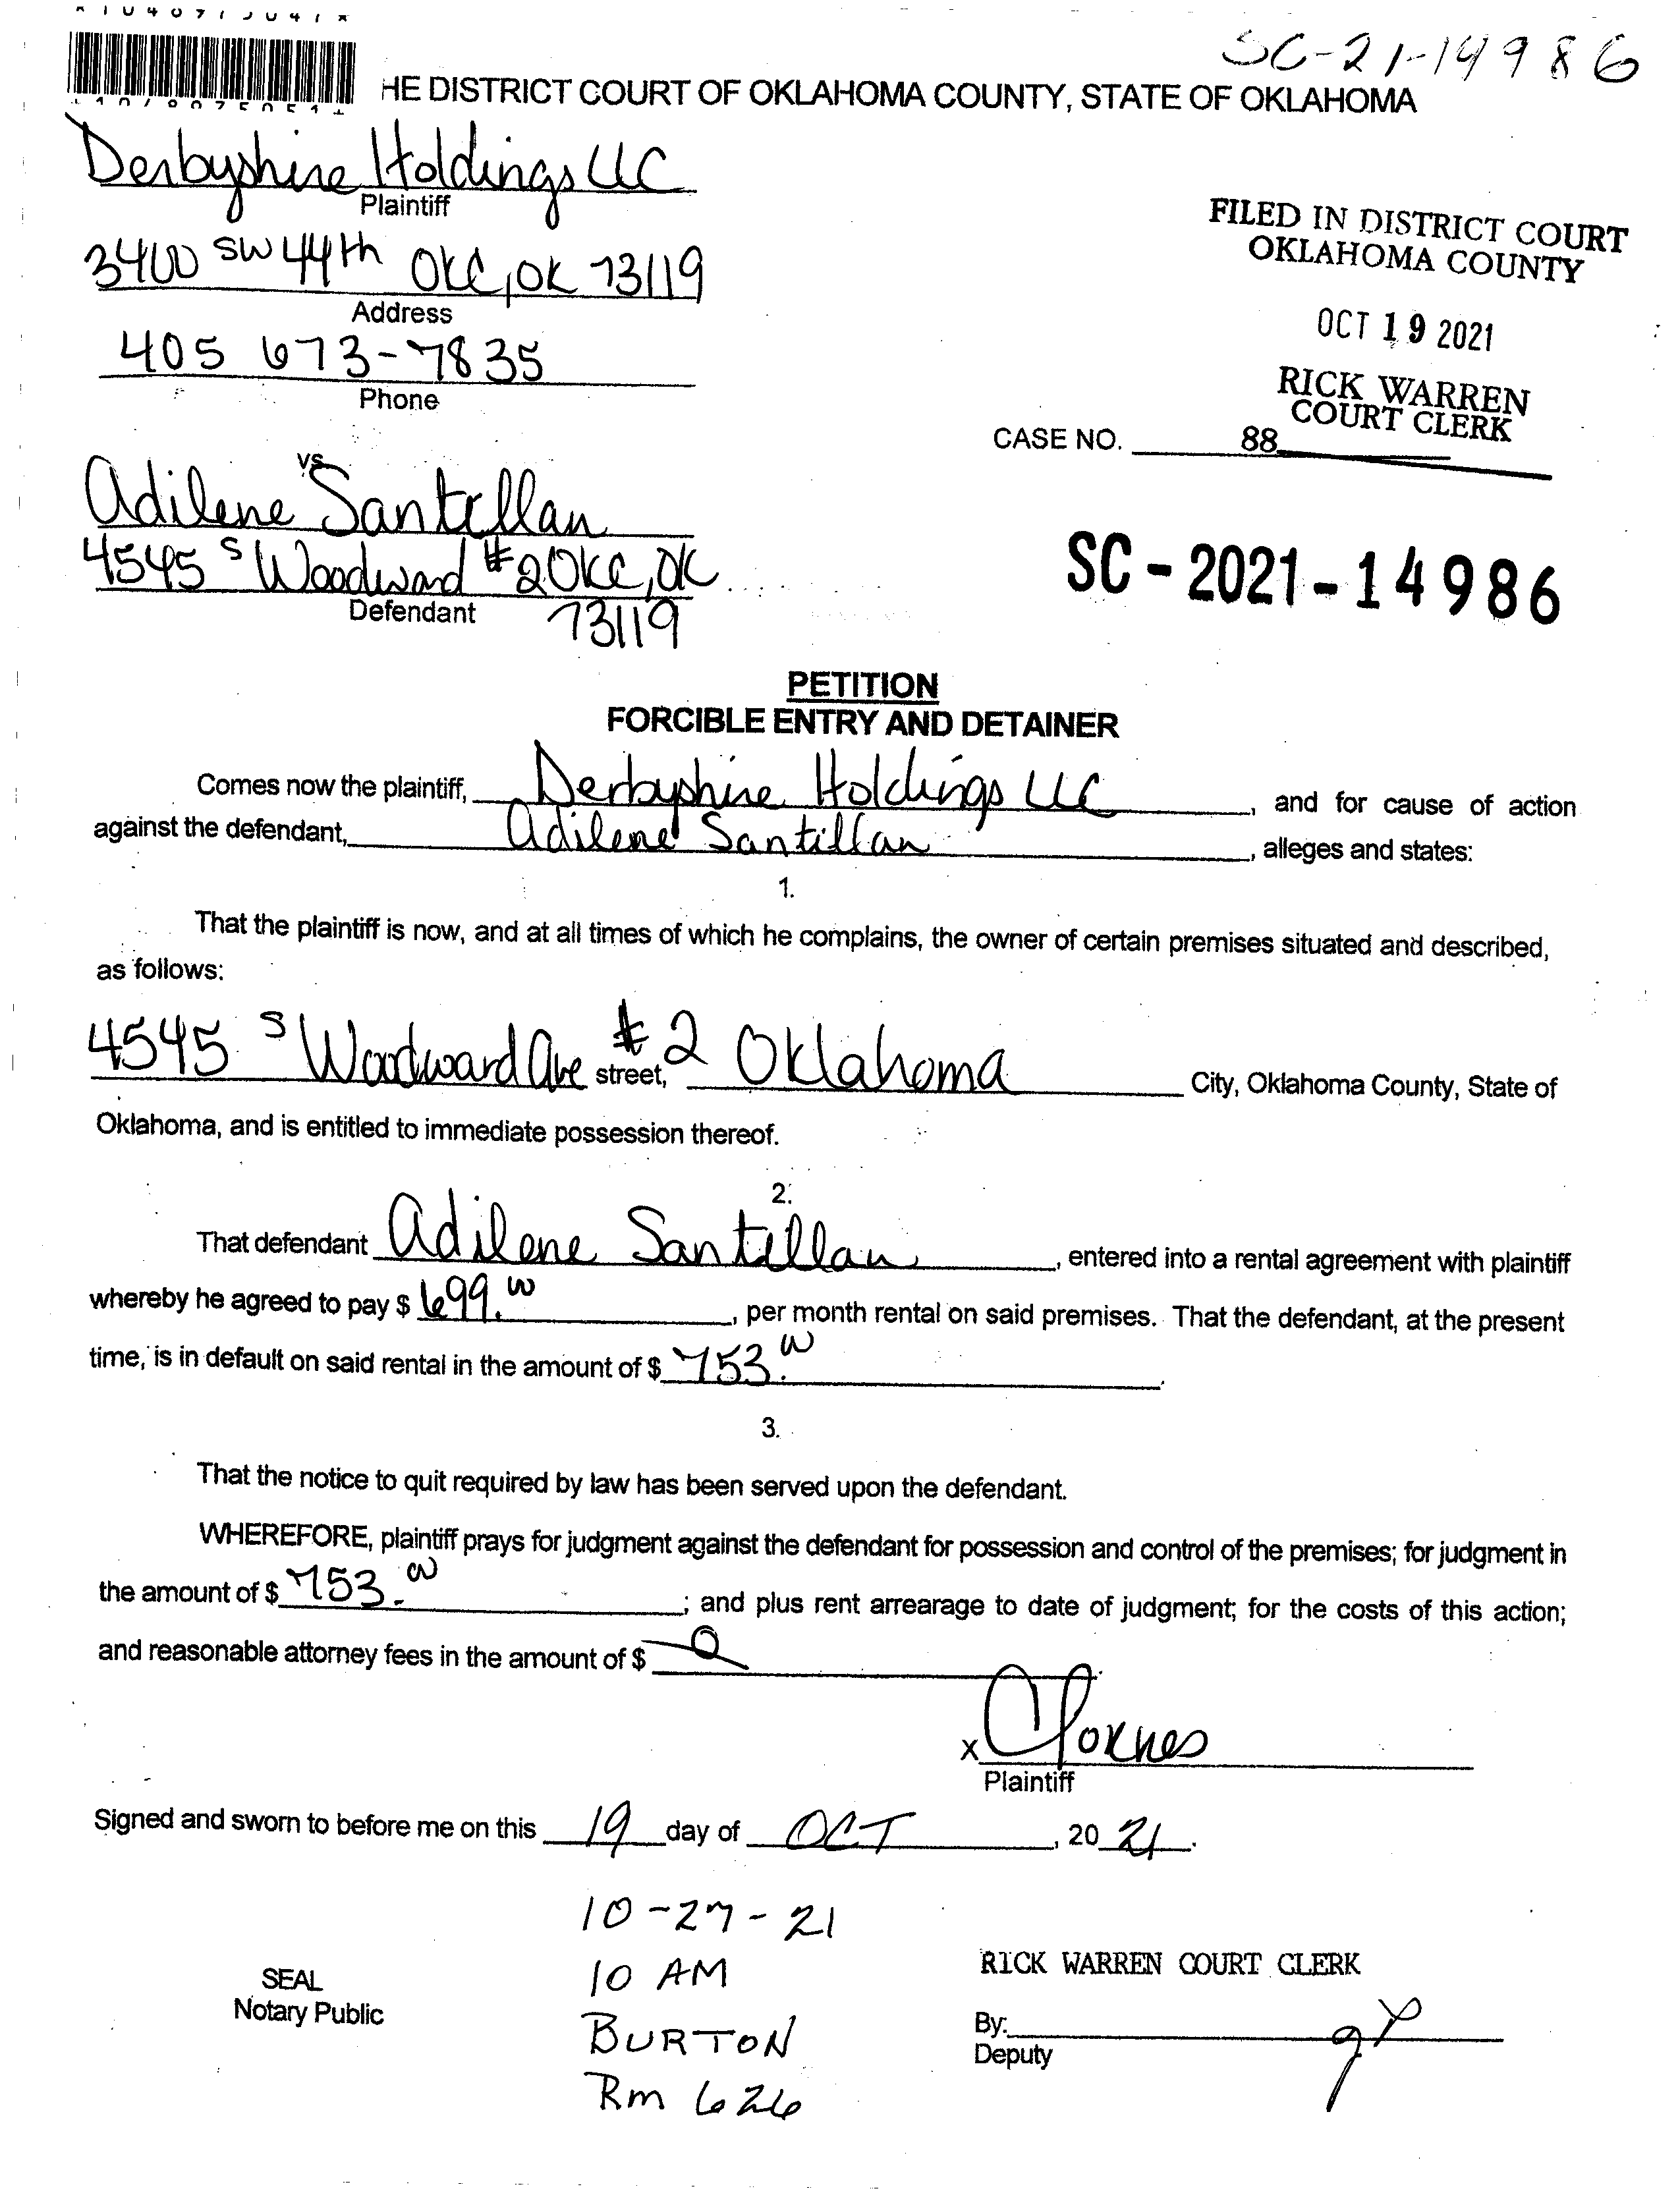 SC-21-14986
HE DISTRICT COURT OF OKLAHOMA COUNTY, STATE OF OKLAHOMA
Derbyshire Holdings LLC
Plaintiff
3400 SW 44th OKC, OK 73119
Address
405 673-7835
Phone
FILED IN DISTRICT COURT
OKLAHOMA COUNTY
OCT 19 2021
RICK WARREN
COURT CLERK
CASE NO. 88
vs
Adilene Santillan
4545 S Woodward #2 OKC, OK
Defendant 73119
SC-2021-14986
PETITION
FORCIBLE ENTRY AND DETAINER
Comes now the plaintiff, Derbyshire Holdings LLC, and for cause of action
against the defendant, Adilene Santillan, alleges and states:
1.
That the plaintiff is now, and at all times of which he complains, the owner of certain premises situated and described,
as follows:
4545 S Woodward Ave street, #2 Oklahoma City, Oklahoma County, State of
Oklahoma, and is entitled to immediate possession thereof.
2.
That defendant Adilene Santillan, entered into a rental agreement with plaintiff
whereby he agreed to pay $ 699.00, per month rental on said premises. That the defendant, at the present
time, is in default on said rental in the amount of $ 753.00.
3.
That the notice to quit required by law has been served upon the defendant.
WHEREFORE, plaintiff prays for judgment against the defendant for possession and control of the premises; for judgment in
the amount of $ 753.00; and plus rent arrearage to date of judgment; for the costs of this action;
and reasonable attorney fees in the amount of $ 0.
x
Plaintiff
Signed and sworn to before me on this 19 day of OCT, 20 21.
10-27-21
10 AM
BURTON
Rm 626
SEAL
Notary Public
RICK WARREN COURT CLERK
By:
Deputy